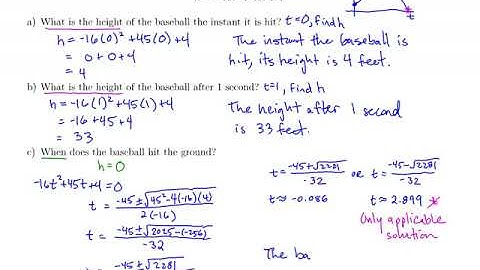 a) What is the height of the baseball the instant it is hit? t=0, find h
h = -16(0)² + 45(0) + 4
= 0 + 0 + 4
= 4
The instant the baseball is
hit, its height is 4 feet.
b) What is the height of the baseball after 1 second? t=1, find h
h = -16(1)² + 45(1) + 4
= -16 + 45 + 4
= 33
The height after 1 second
is 33 feet.
c) When does the baseball hit the ground?
h = 0
-16t² + 45t + 4 = 0
t = -45 ± √45² - 4(-16)(4) / 2(-16)
t = -45 ± √2025 - (-256) / -32
t = -45 ± √2281
t = -45 + √2281 / -32 or t = -45 - √2281 / -32
t ≈ -0.086 t ≈ 2.899
Only applicable
solution
The ba